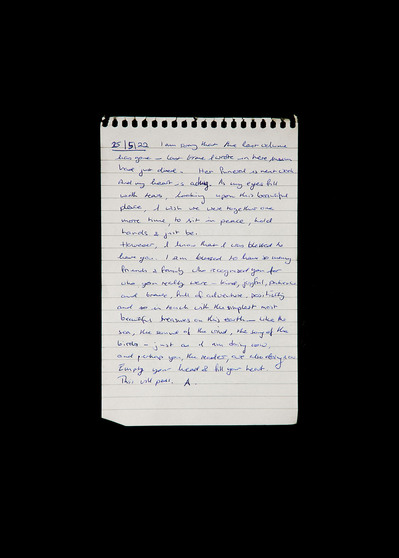 25/5/22 I am sorry that the last volume
has gone - last time I wrote in here, mum
have just died. Her funeral is next week
And my heart is aching. As my eyes fill
with tears, looking upon this beautiful
place, I wish we were together one
more time, to sit in peace, hold
hands & just be.
However, I know that I was blessed to
have you. I am blessed to have so many
friends & family who recognised you for
who you really were - kind, joyful,
and brave, full of adventure, positivity
and so in touch with the simplest most
beautiful treasures on this earth - like the
sea, the sound of the wind, the song of the
birds - just as I am doing now,
and perhaps you, the reader, are also doing now.
Empty your head & fill your heart.
This will pass. A.